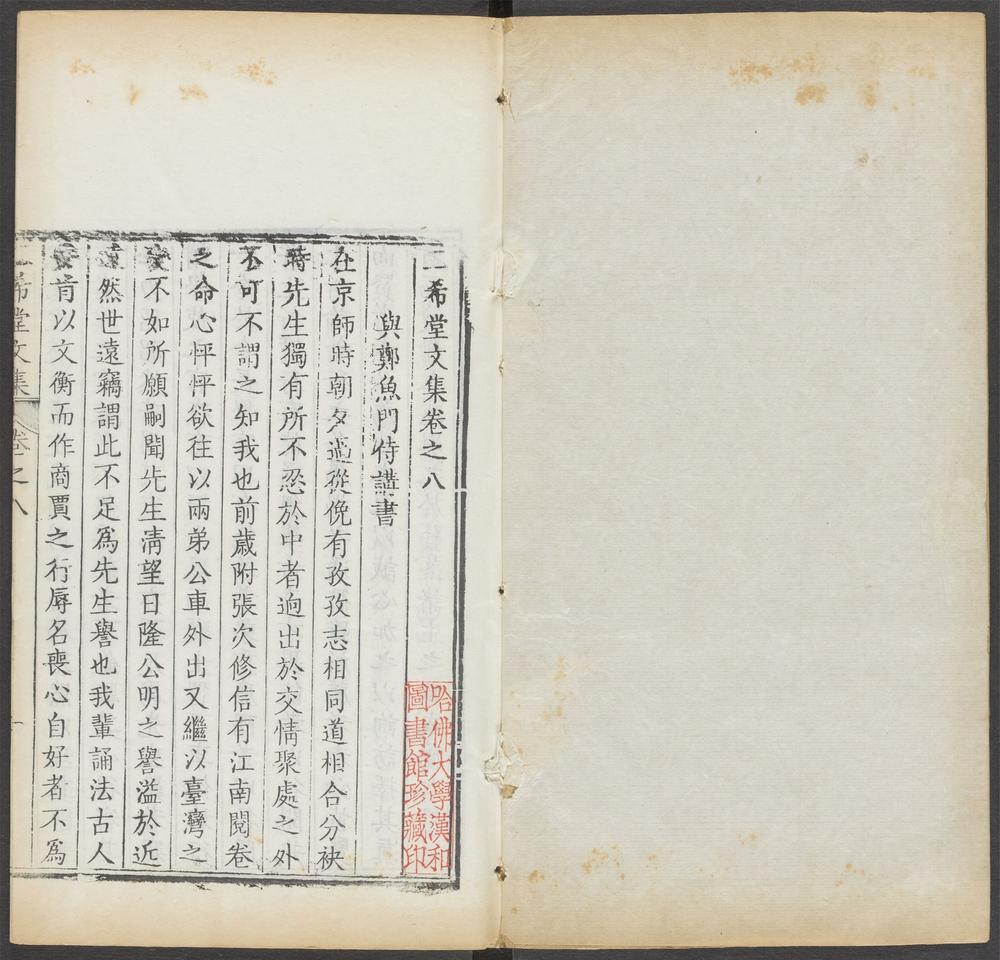 二希堂文集卷之八
與鄭魚門侍講書
在京師時朝夕過從俛有孜孜志相同道相合分袂
時先生獨有所不忍於中者逈出於交情聚處之外
不可不謂之知我也前歲附張次修信有江南閱卷
之命心怦怦欲往以兩弟公車外出又繼以臺灣之
變不如所願嗣聞先生清望日隆公明之譽溢於近
遠然世遠竊謂此不足爲先生譽也我輩誦法古人
安肯以文衡而作商賈之行辱名喪心自好者不爲
二希堂文集 卷之八 一
哈佛大學漢和
圖書館珍藏印